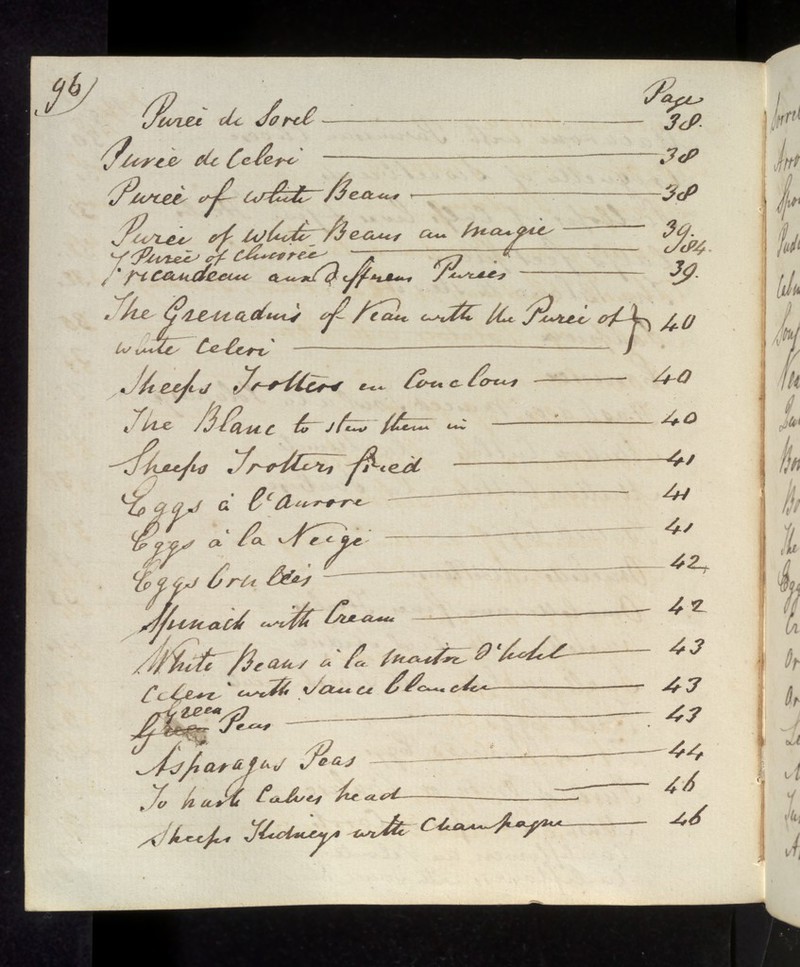 96)
Page
Pureé de Sorel 38.
Pureé de Celeri 38
Pureé of white Beans 38
Pureé of white Beans au maigre 39.
Pureé of Chicoreé 84.
Fricandeau aux differens Pureés 39.
The Grenadins of Veau with the Pureé of } 40
white Celeri
Sheeps Trotters en Conclous 40
The Blanc to stew them in 40
Sheeps Trotters fried 41
Eggs à l'aurore 41
Eggs à la Neige 41
Eggs Brulleés 42
Spinach with Cream 42
White Beans à la maitre d'hotel 43
Celeri with Sauce blanche 43
Green
Green Peas 43
Asparagus Peas 44
To hash Calves head 46
Sheeps Kidneys with Champagne 46